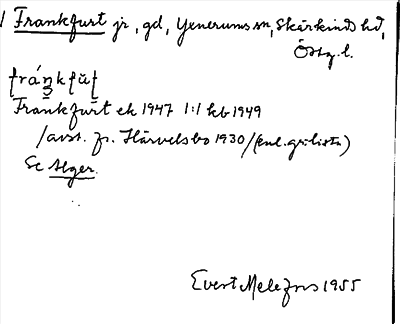 Frankfurt jr, gd, Yxnerums sn, Skärkinds hd,
Östg. l.
fráŋkfu̇ʈ
Frankfurt ek 1947 1:1 kb 1949
/avst. fr. Härvelsbo 1930/(enl. gårdlista)
Se Alger.
Evert Melefors 1955